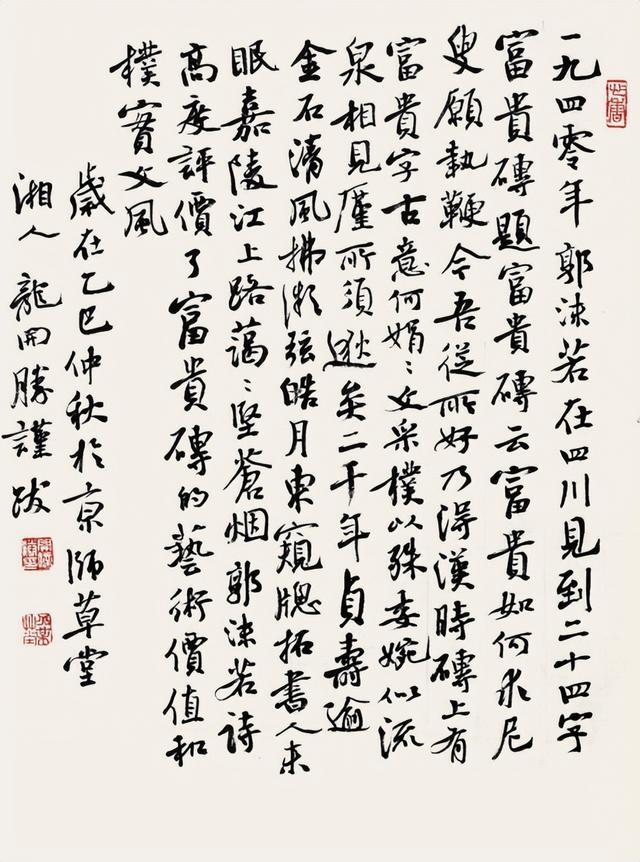 一九四零年郭沫若在四川見到二十四字
富貴磚題富貴磚云富貴如何求尼
叟願執鞭今吾從所好乃得漢時磚上有
富貴字古意何娟〻文采樸以殊委婉似流
泉相見廑所須逖矣二千年貞壽逾
金石清風拂漱弦皓月東窺牕拓書人未
眠嘉陵江上路藹〻豎蒼烟郭沫若詩
高度評價了富貴磚的藝術價值和
樸實文風
歲在乙巳仲秋於京師草堂
湘人龍開勝謹跋